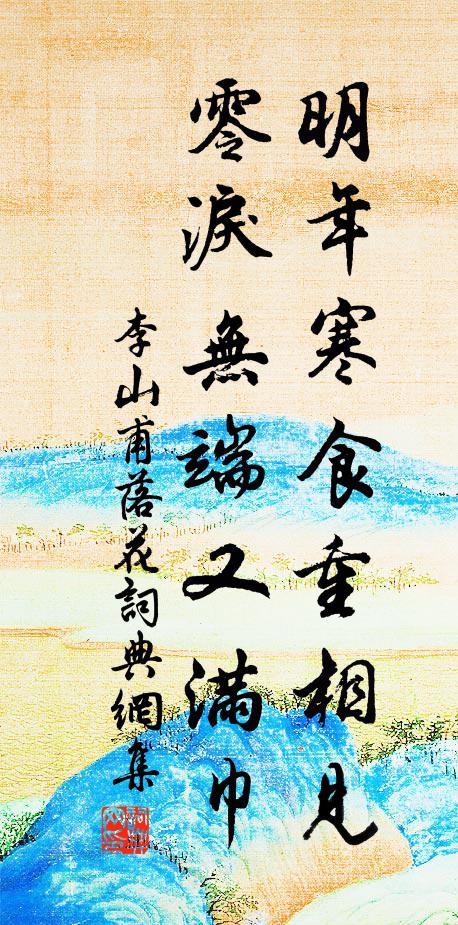 明年寒食重相見
零淚無端又滿巾
李山甫落花詞典網集